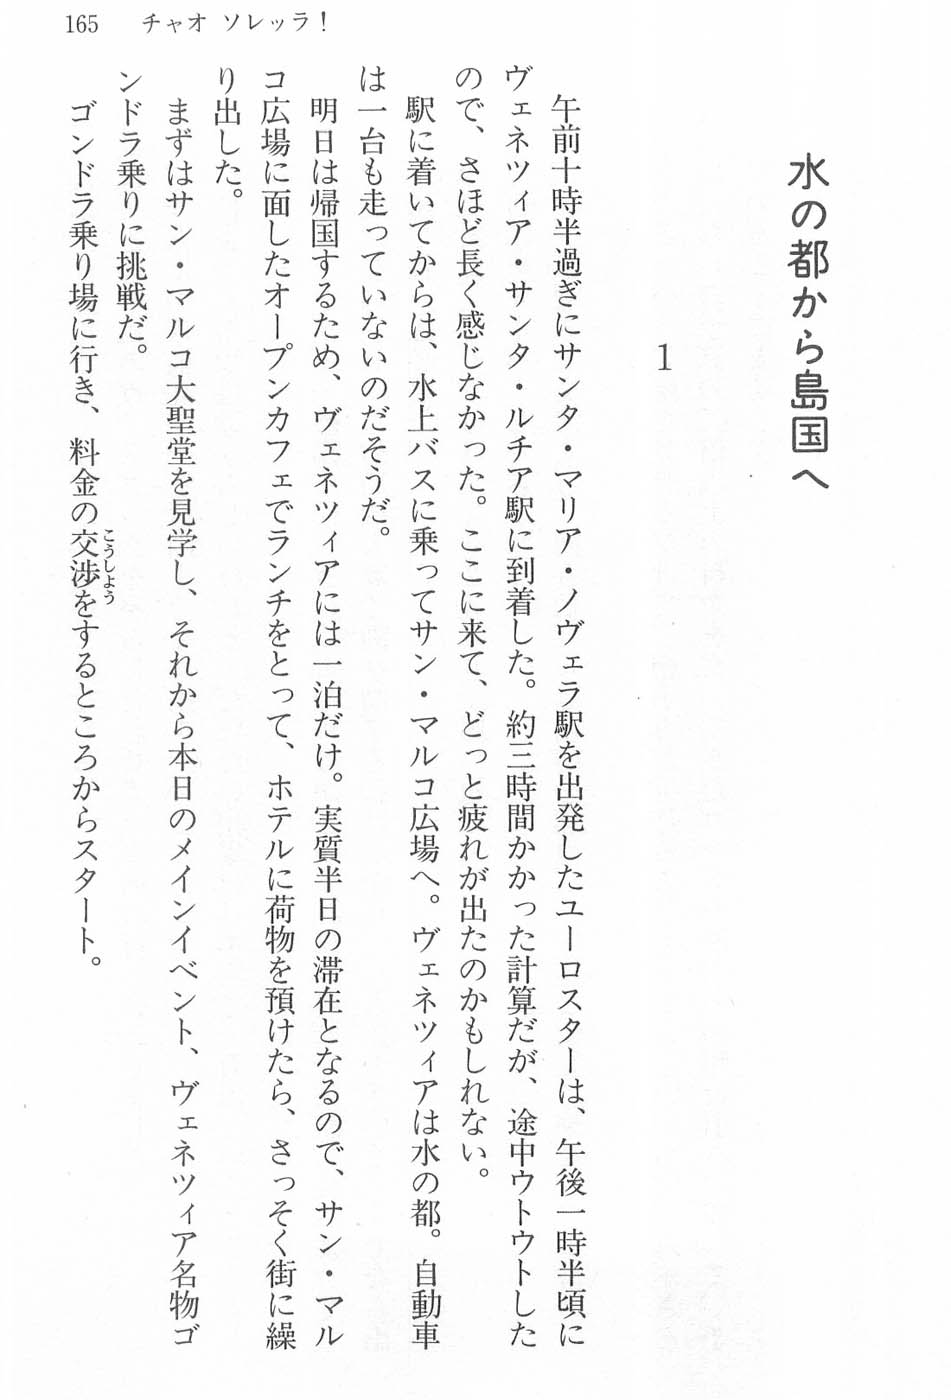 165 チャオ ソレッラ！
水の都から島国へ
1
　午前十時半過ぎにサンタ・マリア・ノヴェラ駅を出発したユーロスターは、午後一時半頃に
ヴェネツィア・サンタ・ルチア駅に到着した。約三時間かかった計算だが、途中ウトウトした
ので、さほど長く感じなかった。ここに来て、どっと疲れが出たのかもしれない。
　駅に着いてからは、水上バスに乗ってサン・マルコ広場へ。ヴェネツィアは水の都。自動車
は一台も走っていないのだそうだ。
　明日は帰国するため、ヴェネツィアには一泊だけ。実質半日の滞在となるので、サン・マル
コ広場に面したオープンカフェでランチをとって、ホテルに荷物を預けたら、さっそく街に繰
り出した。
　まずはサン・マルコ大聖堂を見学し、それから本日のメインイベント、ヴェネツィア名物ゴ
ンドラ乗りに挑戦だ。
　ゴンドラ乗り場に行き、料金の交渉こうしようをするところからスタート。